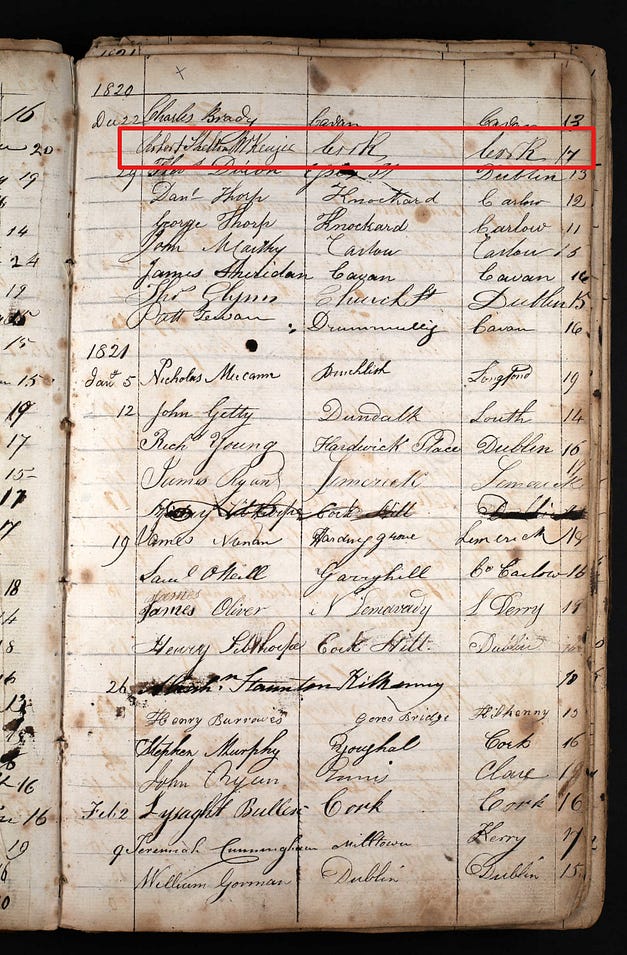 1821
1820
Charles Brady Cavan Cavan 13
Robert Shelton McKenzie Cork Cork 17
29 Thos Dixon Dublin 15
Danl Thorp Knockard Carlow 12
George Thorp Knockard Carlow 11
John McCarthy Carlow Carlow 15
James Sheridan Cavan Cavan 16
Thos Glynn Church St Dublin 15
Patt Drummully Cavan 16
1821
Jany 5 Nicholas Longford 19
12 John Getty Dundalk Louth 14
Richd Young Hardwick Place Dublin 16
James Ryan Limerick Limerick 17
Henry Cork Hill Dublin
19 James Nunan Limerick 18
Saml ONeill Garryhill Co Carlow 16
James
James Oliver N Lemavady L Derry
Henry Sibthorpe Cork Hill Dublin
26 Staunton Kilkenny
Henry Burrowes Gores Bridge Kilkenny 15
Stephen Murphy Youghal Cork 16
John Ryan Ennis Clare
Feb 2 Lysaght Cork Cork 16
9 Jeremiah Cunningham Milltown Kerry 17
William Gorman Dublin Dublin 15